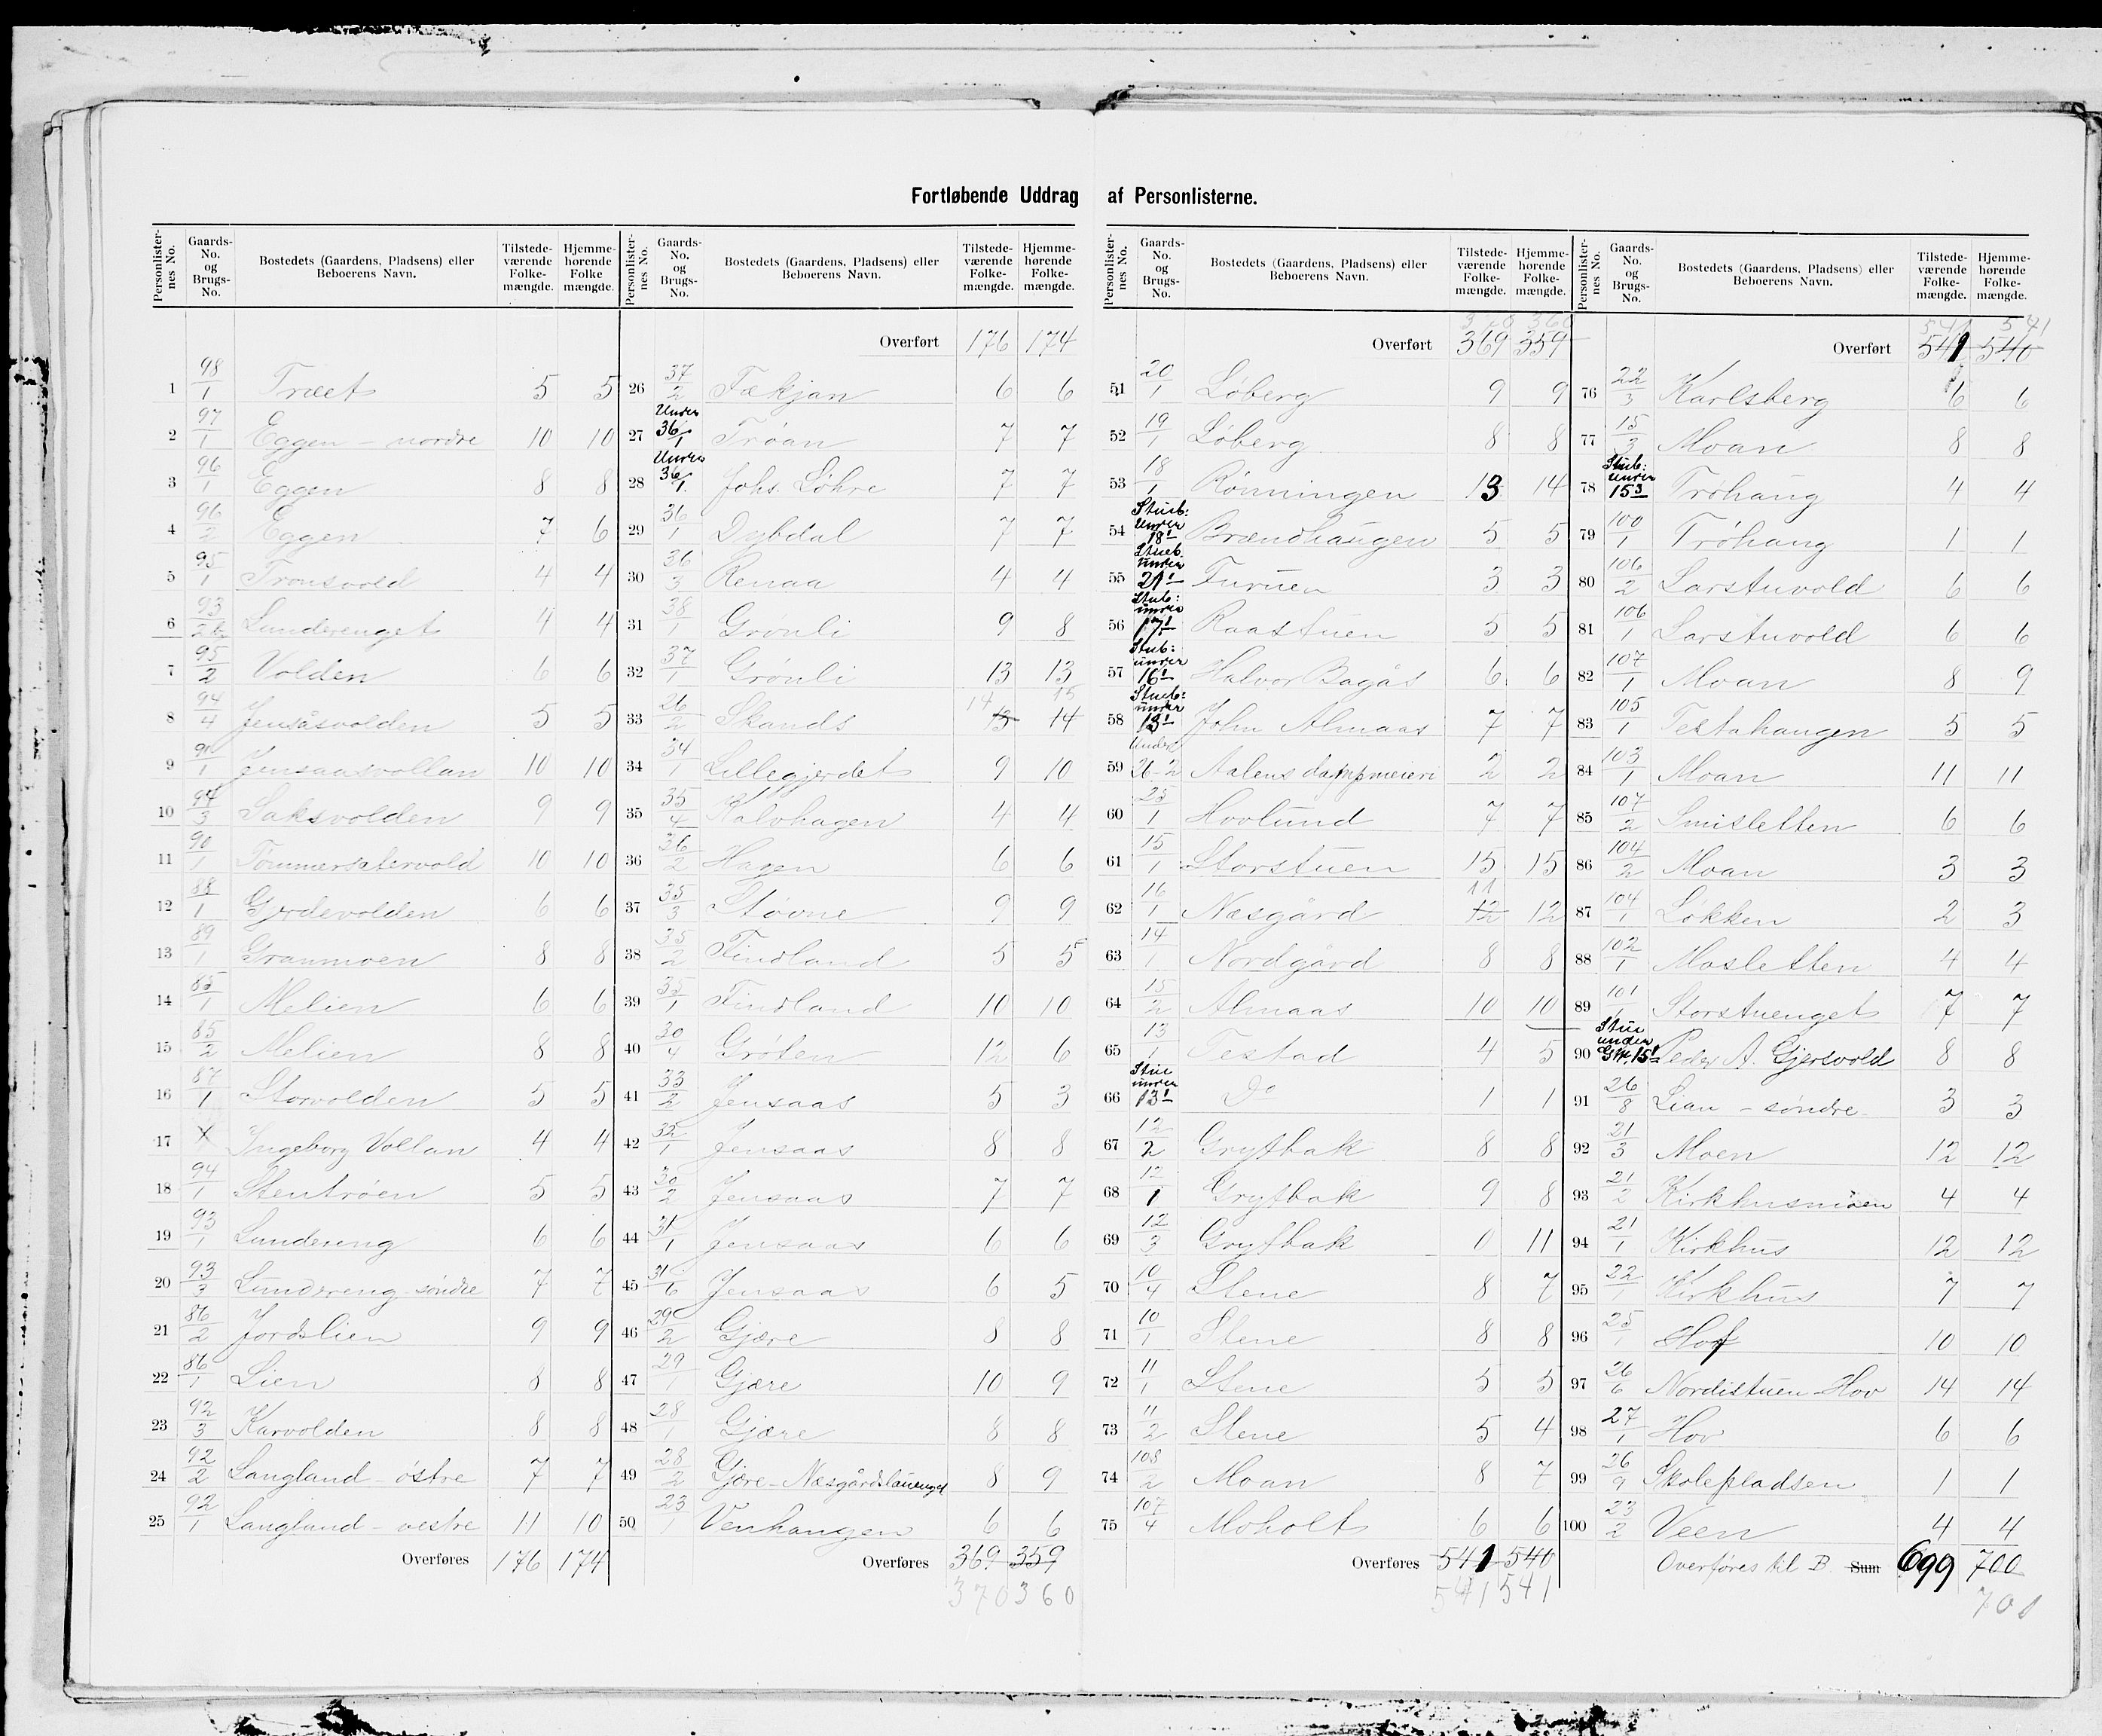 Fortløbende Uddrag af Personlisterne.
Personlisternes No. Gaards-No. og Brugs-No. Bostedets (Gaardens, Pladsens) eller Beboerens Navn. Tilstedeværende Folkemængde. Hjemmehørende Folkemængde.
1 98/1 Træet 5 5
2 97/1 Eggen - nordre 10 10
3 96/1 Eggen 8 8
4 96/2 Eggen 7 6
5 95/1 Tronsvold 4 4
6 93/2b Lunderenget 4 4
7 95/2 Volden 6 6
8 94/4 Jensåsvolden 5 5
9 91/1 Jensaasvollan 10 10
10 94/3 Saksvolden 9 9
11 90/1 Tømmersætervold 10 10
12 88/1 Gjerdevolden 6 6
13 89/1 Granmoen 8 8
14 85/1 Melien 6 6
15 85/2 Melien 8 8
16 87/1 Storvolden 5 5
17 X Ingeborg Vollan 4 4
18 94/1 Stentrøen 5 5
19 93/1 Lundereng 6 6
20 93/3 Lundereng - søndre 7 7
21 86/2 Jordslien 9 9
22 86/1 Lien 8 8
23 92/3 Karvolden 8 8
24 92/2 Langland - østre 7 7
25 92/1 Langland - vestre 11 10
Overføres 176 174
Personlisternes No. Gaards-No. og Brugs-No. Bostedets (Gaardens, Pladsens) eller Beboerens Navn. Tilstedeværende Folkemængde. Hjemmehørende Folkemængde.
Overført 176 174
26 37/2 Fækjan 6 6
27 Under 36/1 Trøan 7 7
28 Under 36/1 Johs. Løhre 7 7
29 36/1 Dybdal 7 7
30 36/3 Renaa 4 4
31 38/1 Grønli 9 8
32 37/1 Grønli 13 13
14 15
33 26/2 Skands 13 14
34 34/1 Lillegjerdet 9 10
35 35/4 Kalvhagen 4 4
36 36/2 Hagen 6 6
37 35/3 Støvne 9 9
38 35/2 Findland 5 5
39 35/1 Findland 10 10
40 30/4 Grøten 12 6
41 33/2 Jensaas 5 3
42 32/1 Jensaas 8 8
43 30/2 Jensaas 7 7
44 31/1 Jensaas 6 6
45 31/6 Jensaas 6 5
46 29/2 Gjære 8 8
47 29/1 Gjære 10 9
48 28/1 Gjære 8 8
49 28/2 Gjære - Næsgårdslauenget 8 9
50 23/1 Venhaugen 6 6
Overføres 369 359
370 360
Personlisternes No. Gaards-No. og Brugs-No. Bostedets (Gaardens, Pladsens) eller Beboerens Navn. Tilstedeværende Folkemængde. Hjemmehørende Folkemængde.
370 360
Overført 369 359
51 20/1 Løberg 9 9
52 19/1 Løberg 8 8
53 18/1 Rønningen 13 14
54 Stueb: under 18/1 Brændhaugen 5 5
55 Stueb. under 21/1 Furuen 3 3
56 Stub: under 17/1 Raastuen 5 5
57 Stub: under 16/1 Halvor Bagås 6 6
58 Stueb: under 13/1 John Almaas 7 7
59 Under 26-2 Aalens dampmeieri 2 2
60 25/1 Hovlund 7 7
61 15/1 Storstuen 15 15
11
62 16/1 Næsgård 12 12
63 14/1 Nordgård 8 8
64 15/2 Almaas 10 10
65 13/1 Testad 4 5
66 Stue under 13/1 Do 1 1
67 12/2 Grytbak 8 8
68 12/1 Grytbak 9 8
69 12/3 Grytbak 0 11
70 10/4 Stene 8 7
71 10/1 Stene 8 8
72 11/1 Stene 5 5
73 11/2 Stene 5 4
74 108/2 Moan 8 7
75 107/4 Moholt 6 6
Overføres 541 540
541 541
Personlisternes No. Gaards-No. og Brugs-No. Bostedets (Gaardens, Pladsens) eller Beboerens Navn. Tilstedeværende Folkemængde. Hjemmehørende Folkemængde.
541 541
Overført 541 540
76 22/3 Karlsberg 6 6
77 15/3 Moan 8 8
78 Stub: under 15/3 Trøhaug 4 4
79 100/1 Trøhaug 1 1
80 106/2 Larstuvold 6 6
81 106/1 Larstuvold 6 6
82 107/1 Moan 8 9
83 105/1 Testahaugen 5 5
84 103/1 Moan 11 11
85 107/2 Smisletten 6 6
86 104/2 Moan 3 3
87 104/1 Løkken 2 3
88 102/1 Mosletten 4 4
89 101/1 Storstuenget 7 7
90 Stue under G.N. 15/1 Peder A. Gjersvold 8 8
91 26/8 Lian - søndre 3 3
92 21/3 Moen 12 12
93 21/2 Kirkhusmoen 4 4
94 21/1 Kirkhus 12 12
95 22/1 Kirkhus 7 7
96 25/1 Hof 10 10
97 26/6 Nordistuen Hov 14 14
98 27/1 Hov 6 6
99 26/9 Skolepladsen 1 1
100 23/2 Veen 4 4
Overføres til B Sum 699 700
701